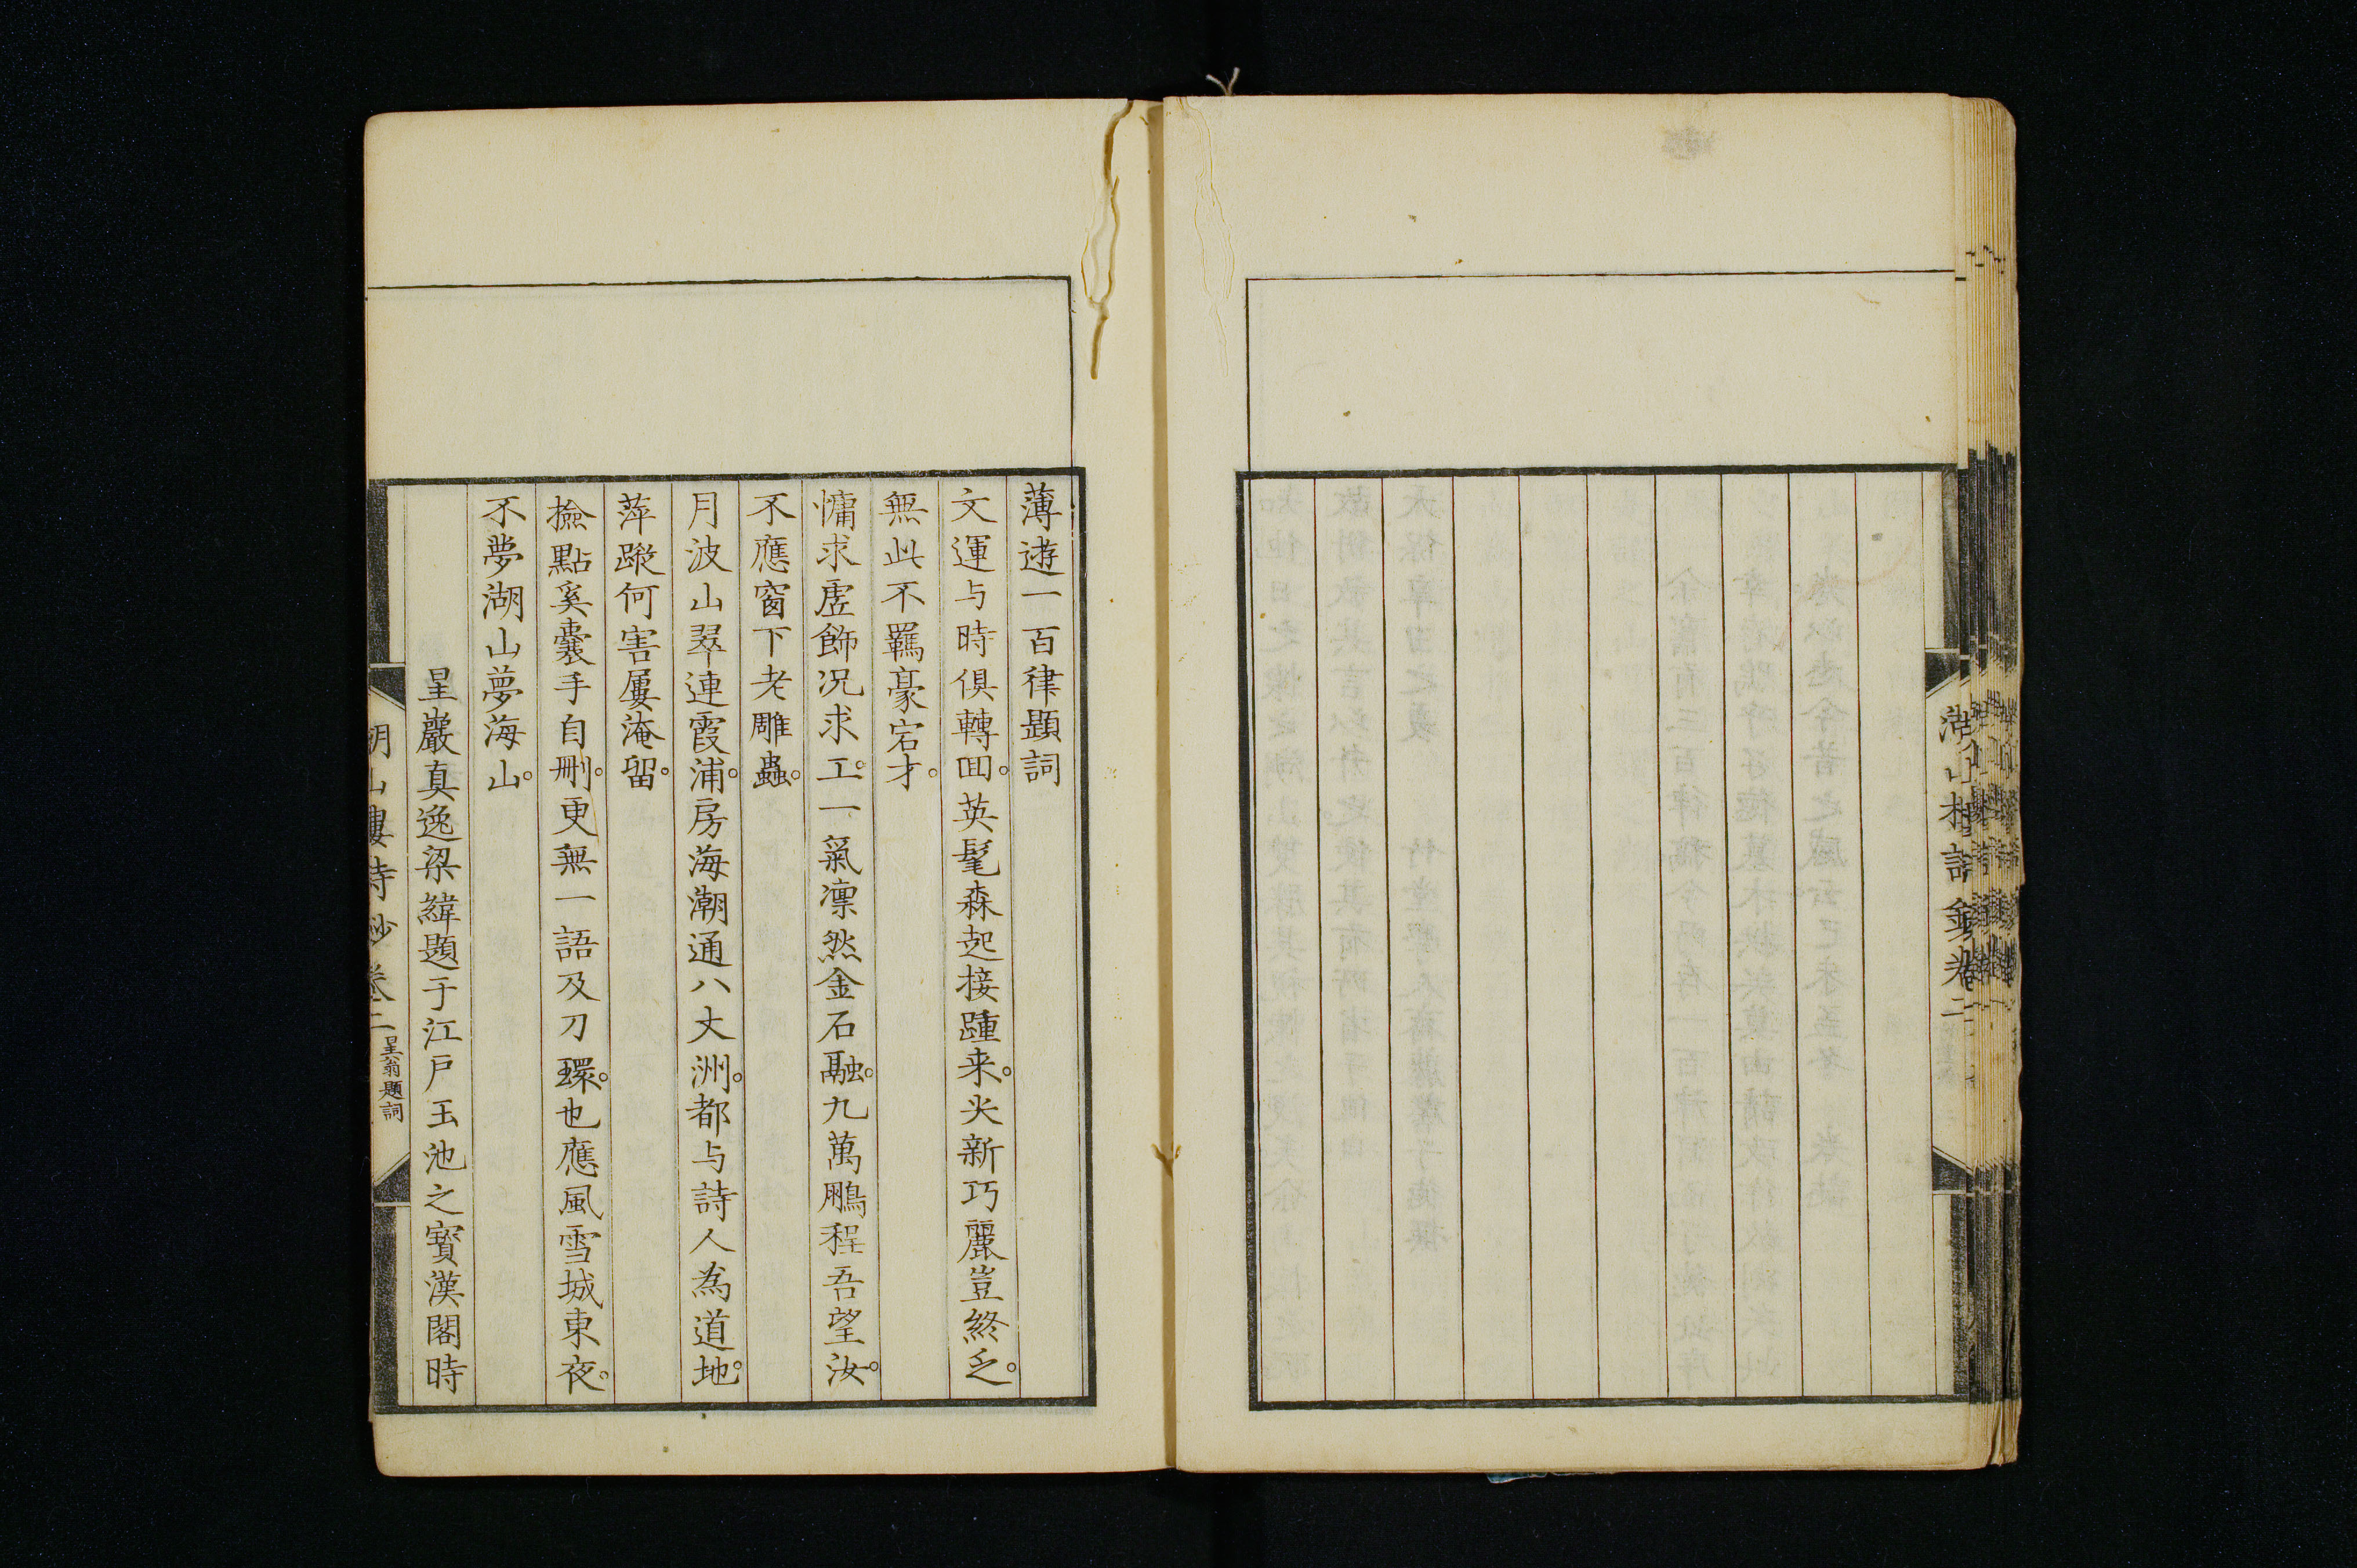 湖山樓詩鈔卷二
薄遊一百律題詞
文運与時俱轉囬。英髦森起接踵来。尖新巧麗豈終乏。
無此不羈豪宕才。
慵求虛飾况求工。一氣凛然金石融。九萬鵬程吾望汝。
不應窗下老雕蟲。
月波山翠連霞浦。房海潮通八大洲。都与詩人為道地。
萍蹤何害屢淹留。
撿點奚囊手自刪。更無一語及刀環。也應風雪城東夜。
不夢湖山夢海山。
星巖真逸梁緯題于江戶玉池之寳漢閣時
湖山樓詩鈔卷二 星翁題詞